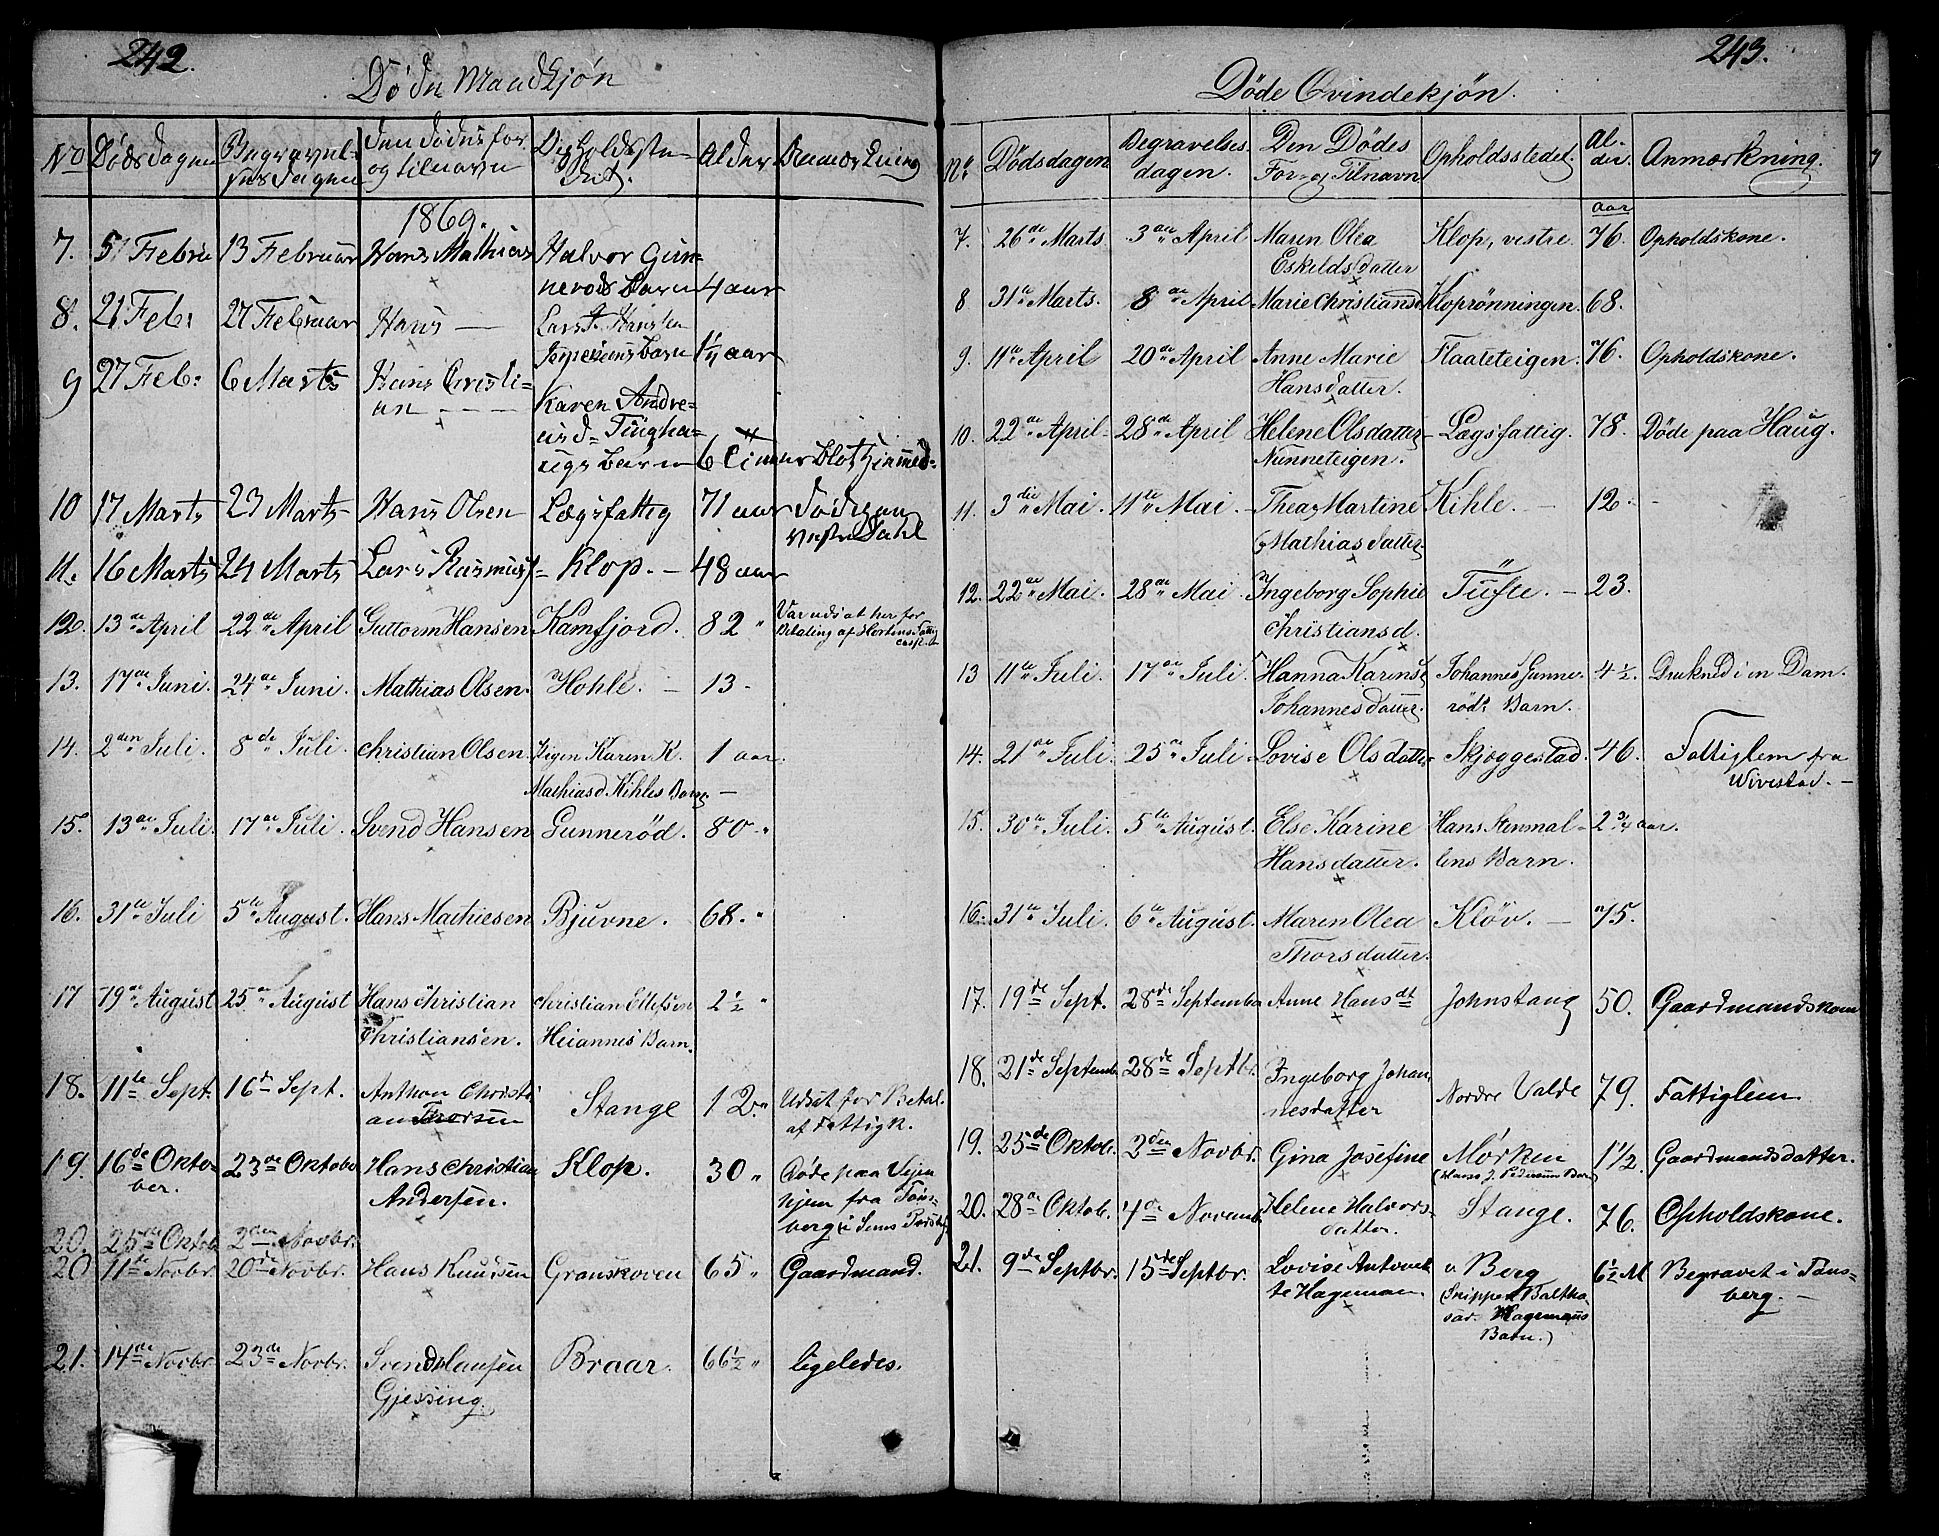 242.
Døde Mandkjøn
No Dødsdagen Begravelsesdagen Den Dødes for og tilnavn Opholdsstedet. Alder Anmærkning
1869.
7. 5 Februar 13 Februar Hans Mathias Halvor Gunnerøds Barn 4 aar
8. 21 Feb: 27 Februar Hans — Lars Hansen Barn aar
9 27 Feb: 6 Marts Hans Christian — Karen Andreasd= Tinghaugs Barn 6 Timer Hjemmed=
10 17 Marts 23 Marts Hans Olsen Lægsfattig 71 aar Døde paa vestre Dahl
11. 16 Marts 24 Marts Lars Rasmuss= Klop. — 48 aar
12. 13de April 22de April Guttorm Hansen Kamfjord. 82 " Var udsat her for Betaling af Hortens Fattig
13. 17de Juni. 24de Juni. Mathias Olsen. Hohle. — 13.
14. 2den Juli. 8de Juli. Christian Olsen. Pigen Karen K. Mathiasd Kihles Barn 1 aar. —
15. 13de Juli. 17de Juli. Svend Hansen Gunnerød. 80 "
16. 31te Juli 5te August. Hans Mathiesen Bjuvne. 68. "
17 19de August 25de August Hans Christian Christiansen. Christian Ellefsen Barn. 2½ "
18. 11te Sept. 16de Sept. Anthon Christian Thorsen Stange 12 " Udsat for Betal. af Fattigk.
19. 16de Oktober. 23de Oktobr Hans Christian Andersen. Klop. 30 " Døde paa Vejen hjem fra Tønsberg i Sems Præstegj.
20. 25de Oktob. 2den Novbr.
20 11te Novbr. 20de Novbr. Hans Knudsen Granskoven 65 " Gaardmand.
21. 14de Novbr. 23de Novbr. Svend Clausen Gjessing. Braar. 66½ " ligeledes.
243.
Døde Qvindekjøn.
No. Dødsdagen Begravelsesdagen. Den Dødes For- og Tilnavn Opholdsstedet. Alder. Anmærkning.
7. 26de Marts. 3die April Maren Olea Eskeldsdatter Klop, vestre aar 76. Opholdskone.
8 31te Marts. 8de April Marie Christiansd Kloprønningen. 68.
9. 11te April 20de April Anne Marie Hansdatter. Flaateteigen. 76. Opholdskone.
10. 22de April. 28de April Helene Olsdatter Nunneteigen. Lægsfattig. 78. Døde paa Haug.
11. 3die Mai. 11te Mai. Thea Martine Mathiasdatter. Kihle. — 12. —
12. 22de Mai. 28de Mai. Ingeborg Sophie Christiansd. Tufte. — 23.
13 11te Juli. 17de Juli. Hanna Karine Johannesdatter. Johannes Gunnerøds Barn. 4½. Druknede i en Dam.
14. 21de Juli. 25de Juli. Lovise Olsdatter Skjæggestad. 46. Fattiglem fra Wivestad. —
15. 30te Juli. 5te August. Else Karine Hansdatter. Hans Stenmallens Barn. 2¾ aar.
16. 31te Juli. 6te August. Maren Olea Thorsdatter. Kløv. — 75.
17. 19de Sept. 28de September Anne Hansdt Johnstang 50. Gaardmandskone
18. 21de September 28de Septbr. Ingeborg Johannesdatter Nordre Valde 79. Fattiglem
19. 25de Oktob. 2den Novbr. Gina Josefine Mørken (Hans J. Pedersens Barn) 1½. Gaardmandsdatter.
20. 28de Oktob. 4de Novemb. Helene Halvorsdatter. Stange. 76. Opholdskone.
21. 9de Septbr. 15de Septbr. Lovise Antonette Hageman. v. Berg (Skipper Balthasar Hagemans Barn.) 6½ M Begravet i Tønsberg. —